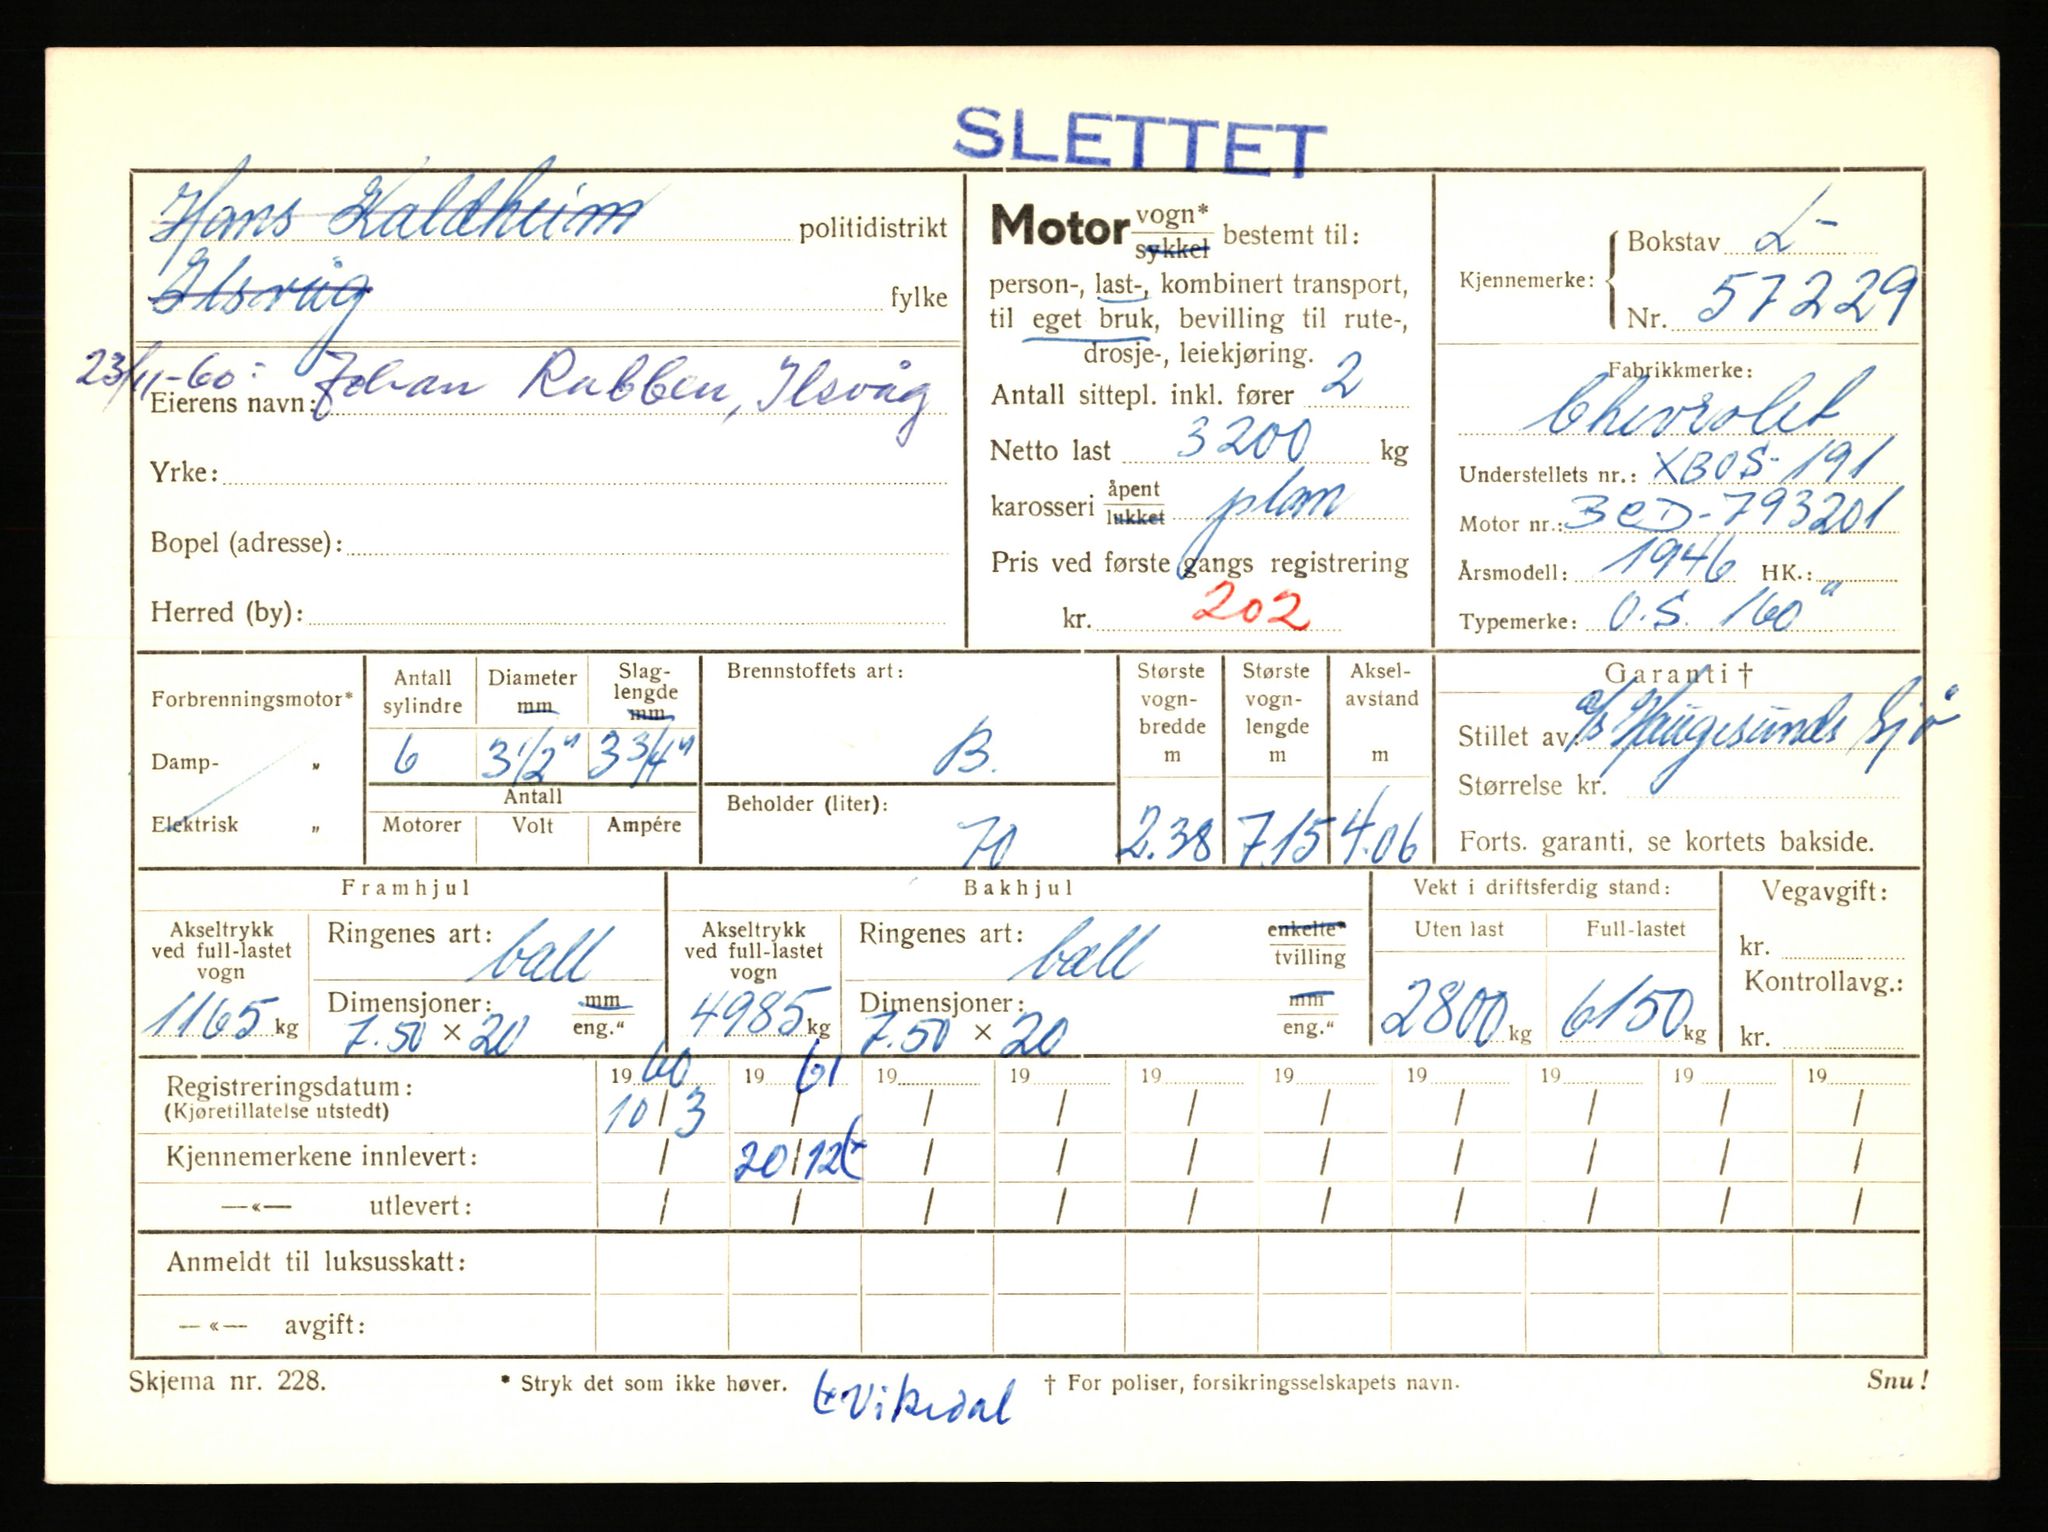 SLETTET
Hans Kaldheim politidistrikt
Ilsvåg fylke
23/11-60: Johan Rabben, Ilsvåg
Eierens navn:
Yrke:
Bopel (adresse):
Herred (by):
Motor vogn* sykkel bestemt til:
person-, last-, kombinert transport,
til eget bruk, bevilling til rute-,
drosje-, leiekjøring.
Antall sittepl. inkl. fører 2
Netto last 3200 kg
karosseri åpent lukket plan
Pris ved første gangs registrering
kr. 202
Kjennemerke: Bokstav L-
Nr. 57229
Fabrikkmerke:
Chevrolet
Understellets nr.: XBOS-191
Motor nr.: BCD-793201
Årsmodell: 1946 HK.: "
Typemerke: O.S. 160
Forbrenningsmotor*
Damp- "
Elektrisk "
Antall sylindre
Diameter mm
Slag-lengde mm
6 3 1/2" 3 3/4"
Antall
Motorer Volt Ampére
Brennstoffets art:
B.
Beholder (liter):
70
Største vogn-bredde m
2.38
Største vogn-lengde m
7.15
Aksel-avstand m
4.06
Garanti †
Stillet av: a/s Haugesunds Sjø
Størrelse kr.
Forts. garanti, se kortets bakside.
Framhjul
Akseltrykk ved full-lastet vogn
1165 kg
Ringenes art: ball
Dimensjoner: mm
7.50 × 20 eng."
Bakhjul
Akseltrykk ved full-lastet vogn
4985 kg
Ringenes art: ball enkelte* tvilling
Dimensjoner: mm
7.50 × 20 eng."
Vekt i driftsferdig stand:
Uten last Full-lastet
2800 kg 6150 kg
Vegavgift:
kr.
Kontrollavg.:
kr.
Registreringsdatum: 1960 1961 19 19 19 19 19 19 19 19
(Kjøretillatelse utstedt) 10/3 / / / / / / / / /
Kjennemerkene innlevert: / 20/12 / / / / / / / /
—«— utlevert: / / / / / / / / / /
Anmeldt til luksusskatt:
—«— avgift:
Skjema nr. 228. * Stryk det som ikke høver. Vikedal † For poliser, forsikringsselskapets navn. Snu!